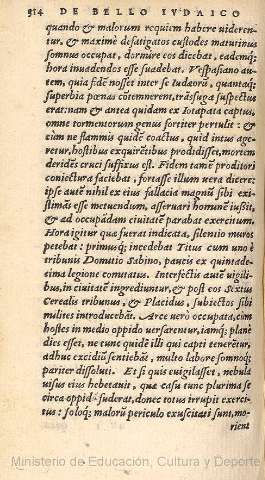 314 DE BELLO IVDAICO
quando & malorum requiem habere viderentur,
ut, & maximè defatigatos custodes maturinus
somnus occupat, dormire eos dicebat, eademq;
hora inuadendos esse suadebat. Vespasiano autem,
quia fidẽ nosset inter se Iudæorũ, quantaq;
superbia pœnas cõtemnerent, trãsfuga suspectus
erat: nam & antea quidam ex Iotapata captus,
omne tormentorum genus fortiter pertulit: &
cùm ne flammis quidẽ coactus, quid intus ageretur,
hostibus exquirẽtibus prodidisset, mortem
deridẽs cruci suffixus est. Fidem tamẽ proditori
coniectura faciebat, fortasse illum uera dicere:
ipse autẽ nihil ex eius fallacia magnis sibi existimãs
esse metuendum, asseruari hominẽ iussit,
& ad occupãdam ciuitatẽ parabat exercitum.
Hora igitur qua fuerat indicata, silentio muros
petebat: primusq; incedebat Titus cum uno è
tribunis Domitio Sabino, paucis ex quintadesima
legione comitatus. Interfectis autẽ uigilibus,
in ciuitatẽ ingrediuntur, & post eos Sextus
Cerealis tribunus, & Placidus, subiectos sibi
milites introducebãt. Arce uerò occupata, cùm
hostes in medio oppido versarentur, iamq; planè
dies esset, ne tunc quidẽ illi qui capti tenerẽtur,
adhuc excidiũ sentiebãt, multo labore somnoq;
pariter dissoluti. Et si quis euigilasset, nebula
uisus eius hebetauit, qua casu tunc plurima se
circa oppidũ fuderat, donec totus irrupit exercitus:
soloq; malorũ periculo exuscitati sunt, morient
Ministerio de Educación, Cultura y Deporte